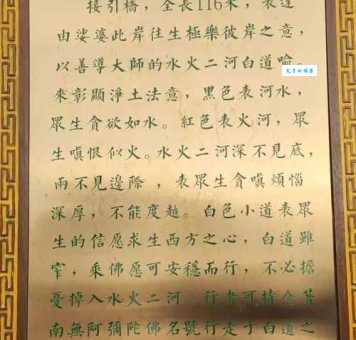 接引橋，全長116米，表達
由娑婆此岸往生極樂彼岸之意，
以善導大師的水火二河白道喻。
來彰顯淨土法意，黑色表河水，
眾生貪欲如水。紅色表火河，眾
生嗔恨似火。水火二河深不見底，
兩不見邊際，表眾生貪嗔煩惱
深厚，不能度越。白色小道表眾
生的信愿求生西方之心，白道雖
窄，乘佛愿可安穩而行，不必擔
憂掉入水火二河
南無阿彌陀佛名號行走于白道之